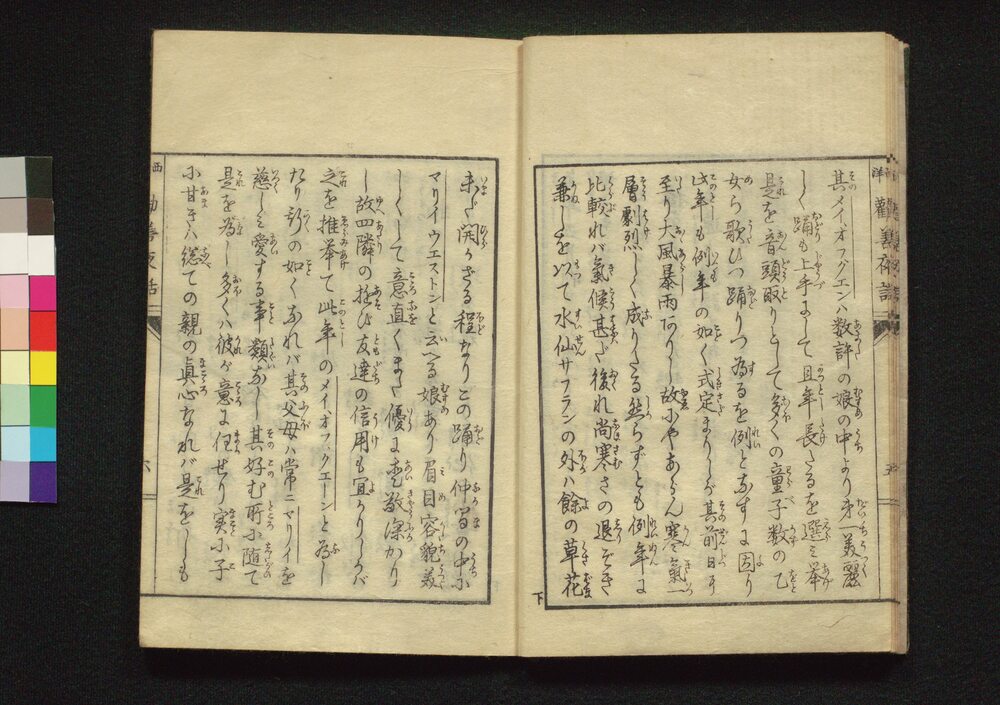 洋勸善夜話
其メイオフクエンハ数許の娘の中より第一美麗
しく踊も上手にして且年長たるを選ミ挙
是を音頭取りとして多くの童子数の乙
女ら歌ひつ踊りつ為るを例となすに因り
此年も例年の如く式定まりしが其前日
至り大風暴雨ありし故にやあらん寒氣一
層劇烈しく成りたる然らずとも例年に
比較れバ氣候甚だ後れ尚寒さの退ぞき
兼しを以て水仙サフランの外ハ餘の草花
下
未だ開かざる程なりこの踊り仲間の中に
マリイウエストンと云へる娘あり眉目容貌美
しくして意直くまた優に愛敬深かり
し故四隣の遊び友達の信用も宜かりしかバ
之を推挙て此年のメイオフクエーンと為し
たり斯の如くなれバ其父母ハ常ニマリイを
慈しミ愛する事類なし其好む所に随て
是を為し多くハ彼が意に任せり実に子
に甘きハ総ての親の真心なれバ是をしも
西
勸善夜話
六